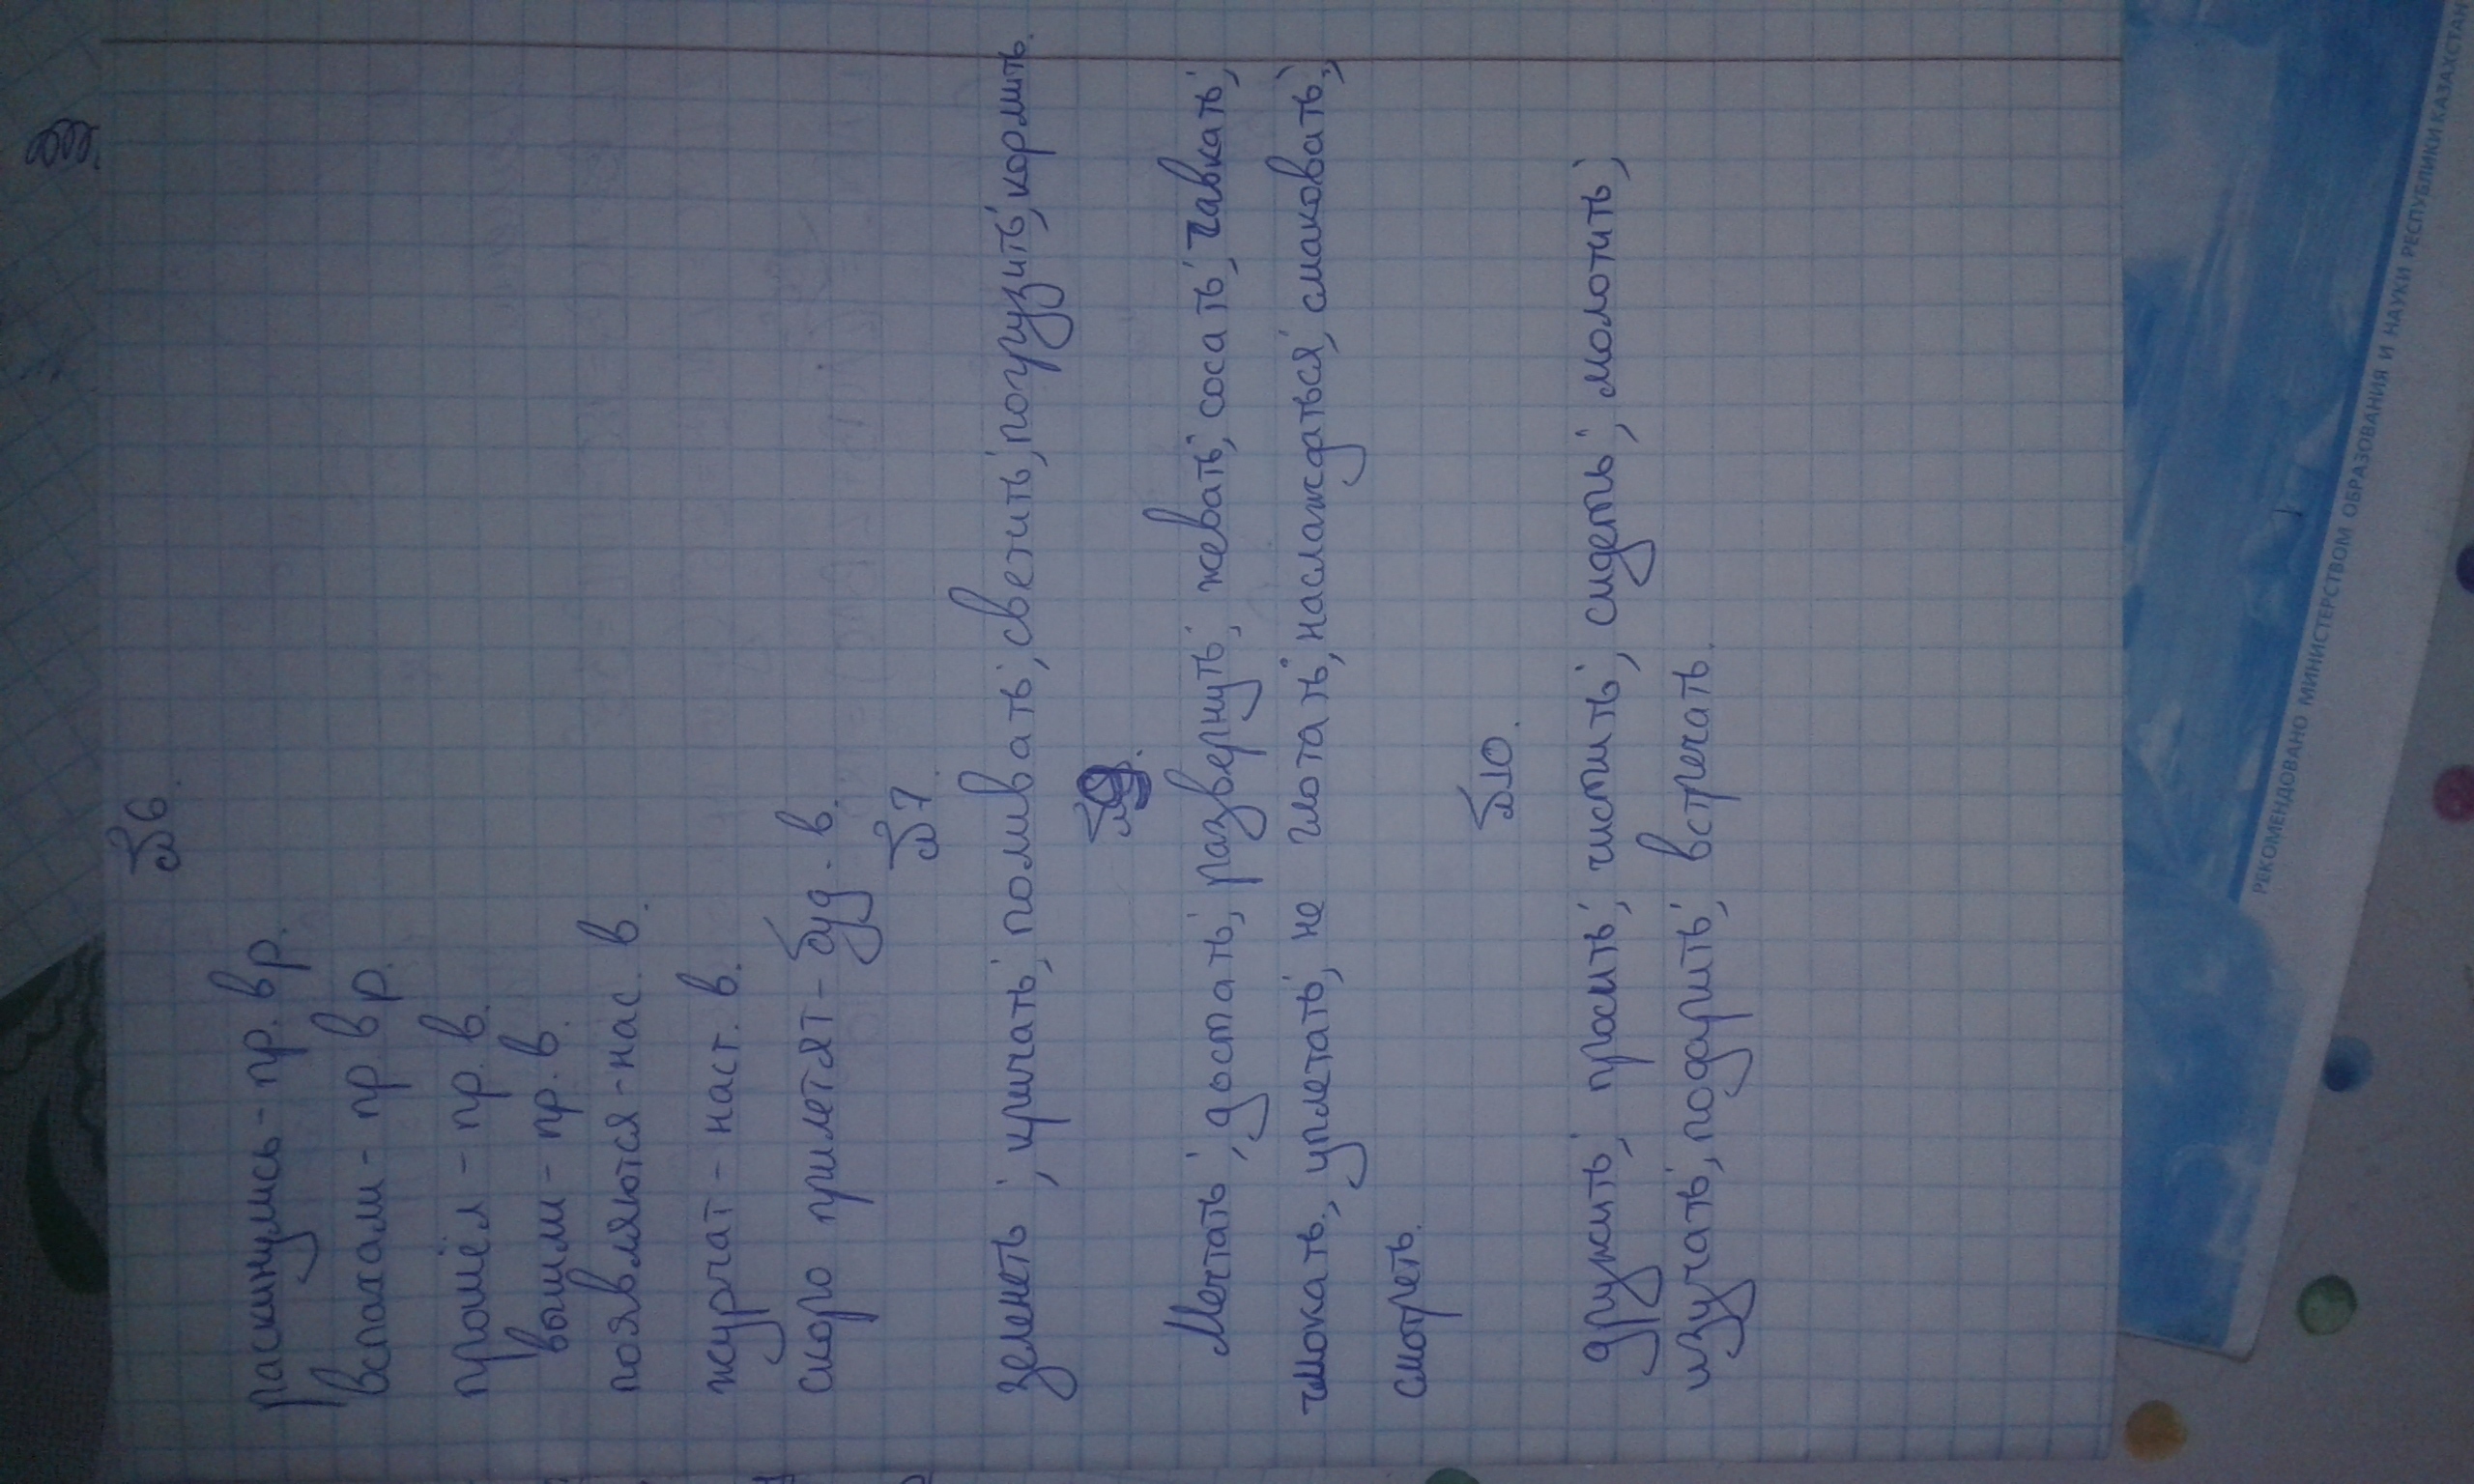 №6.
раскинулись - пр. вр.
вспахали - пр. вр.
прошёл - пр. в.
вышли - пр. в.
появляются - нас. в.
журчат - наст. в.
скоро прилетят - буд. в.
№7.
зеленеть, кричать, поливать, светить, погрузить, кормить.
№9.
Мечтать, достать, развернуть, жевать, сосать, чавкать,
чмокать, уплетать, не глотать, наслаждаться, смаковать,
смотреть.
№10.
дружить, просить, чистить, сидеть, молотить,
изучать, подарить, встречать.
РЕКОМЕНДОВАНО МИНИСТЕРСТВОМ ОБРАЗОВАНИЯ И НАУКИ РЕСПУБЛИКИ КАЗАХСТАН